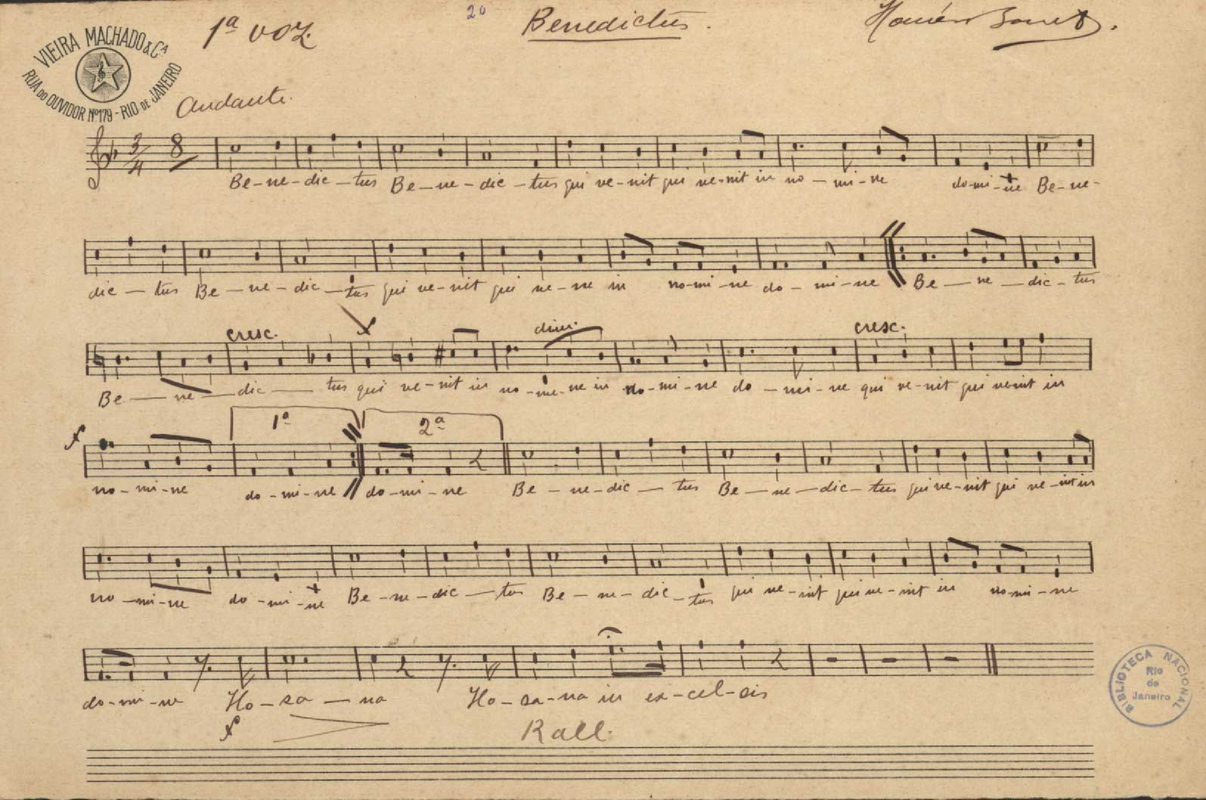 1ª voz 20 Benedictus.
VIEIRA MACHADO & Cª
RUA DO OUVIDOR Nº 179 - RIO DE JANEIRO
Andante.
3/4 8
Be-ne-dic-tus Be-ne-dic-tus qui ve-nit qui ve-nit in no-mi-ne do-mi-ne Be-ne-
dic-tus Be-ne-dic-tus qui ve-nit qui ve-ne in no-mi-ne do-mi-ne Be-ne-dic-tus
cresc. f dim. cresc.
Be-ne-dic-tus qui ve-nit in no-mi-ne in no-mi-ne do-mi-ne qui ve-nit qui venit in
1ª 2ª
f
no-mi-ne do-mi-ne do-mi-ne Be-ne-dic-tus Be-ne-dic-tus qui ve-nit qui ve-nit in
no-mi-ne do-mi-ne Be-ne-dic-tus Be-ne-dic-tus qui ve-nit qui ve-nit in no-mi-ne
do-mi-ne Ho-sa-na Ho-sa-na in ex-cel-sis
f Rall.
BIBLIOTECA NACIONAL
Rio
de
Janeiro